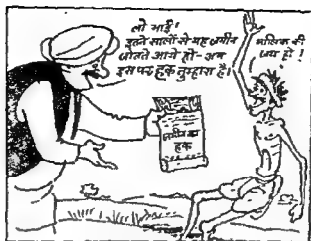 लो भाई!
इतने सालों से यह ज़मीन
जोतते आये हो - अब
इस पर हक़ तुम्हारा है।
मालिक की
जय हो!
ज़मीन का
हक़